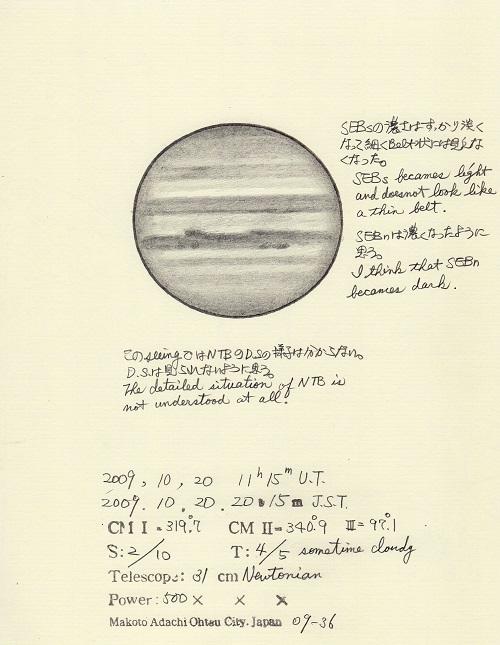 SEBsの濃さはすっかり淡く
なって細くBelt状には見えな
くなった。
SEBs becames light
and doesnot look like
a thin belt.
SEBnは濃くなったように
思う。
I think that SEBn
becames dark.
このseeingではNTBのD.S.の様子は分からない。
D.S.は見られないように思う。
The detailed situation of NTB is
not understood at all!
2009, 10, 20 11h 15m U.T.
2009. 10. 20. 20h 15m J.S.T.
CM I = 319.°7 CM II = 340.°9 III = 97.°1
S: 2/10 T: 4/5 sometime cloudy
Telescope: 31 cm Newtonian
Power: 500 × × ×
Makoto Adachi Ohtsu City. Japan 09-36